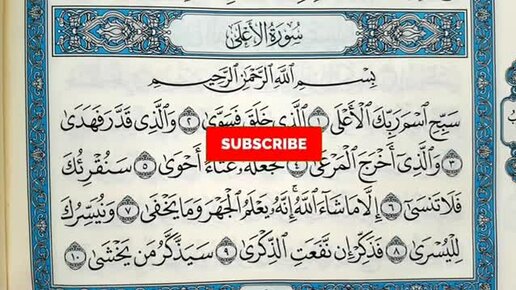 سُورَةُ الْأَعْلَىٰ
بِسْمِ اللَّهِ الرَّحْمَٰنِ الرَّحِيمِ
سَبِّحِ اسْمَ رَبِّكَ الْأَعْلَى ١ الَّذِي خَلَقَ فَسَوَّىٰ ٢ وَالَّذِي قَدَّرَ فَهَدَىٰ
SUBSCRIBE
٣ وَالَّذِي أَخْرَجَ الْمَرْعَىٰ ٤ فَجَعَلَهُ غُثَاءً أَحْوَىٰ ٥ سَنُقْرِئُكَ
فَلَا تَنسَىٰ ٦ إِلَّا مَا شَاءَ اللَّهُ ۚ إِنَّهُ يَعْلَمُ الْجَهْرَ وَمَا يَخْفَىٰ ٧ وَنُيَسِّرُكَ
لِلْيُسْرَىٰ ٨ فَذَكِّرْ إِن نَّفَعَتِ الذِّكْرَىٰ ٩ سَيَذَّكَّرُ مَن يَخْشَىٰ ١٠